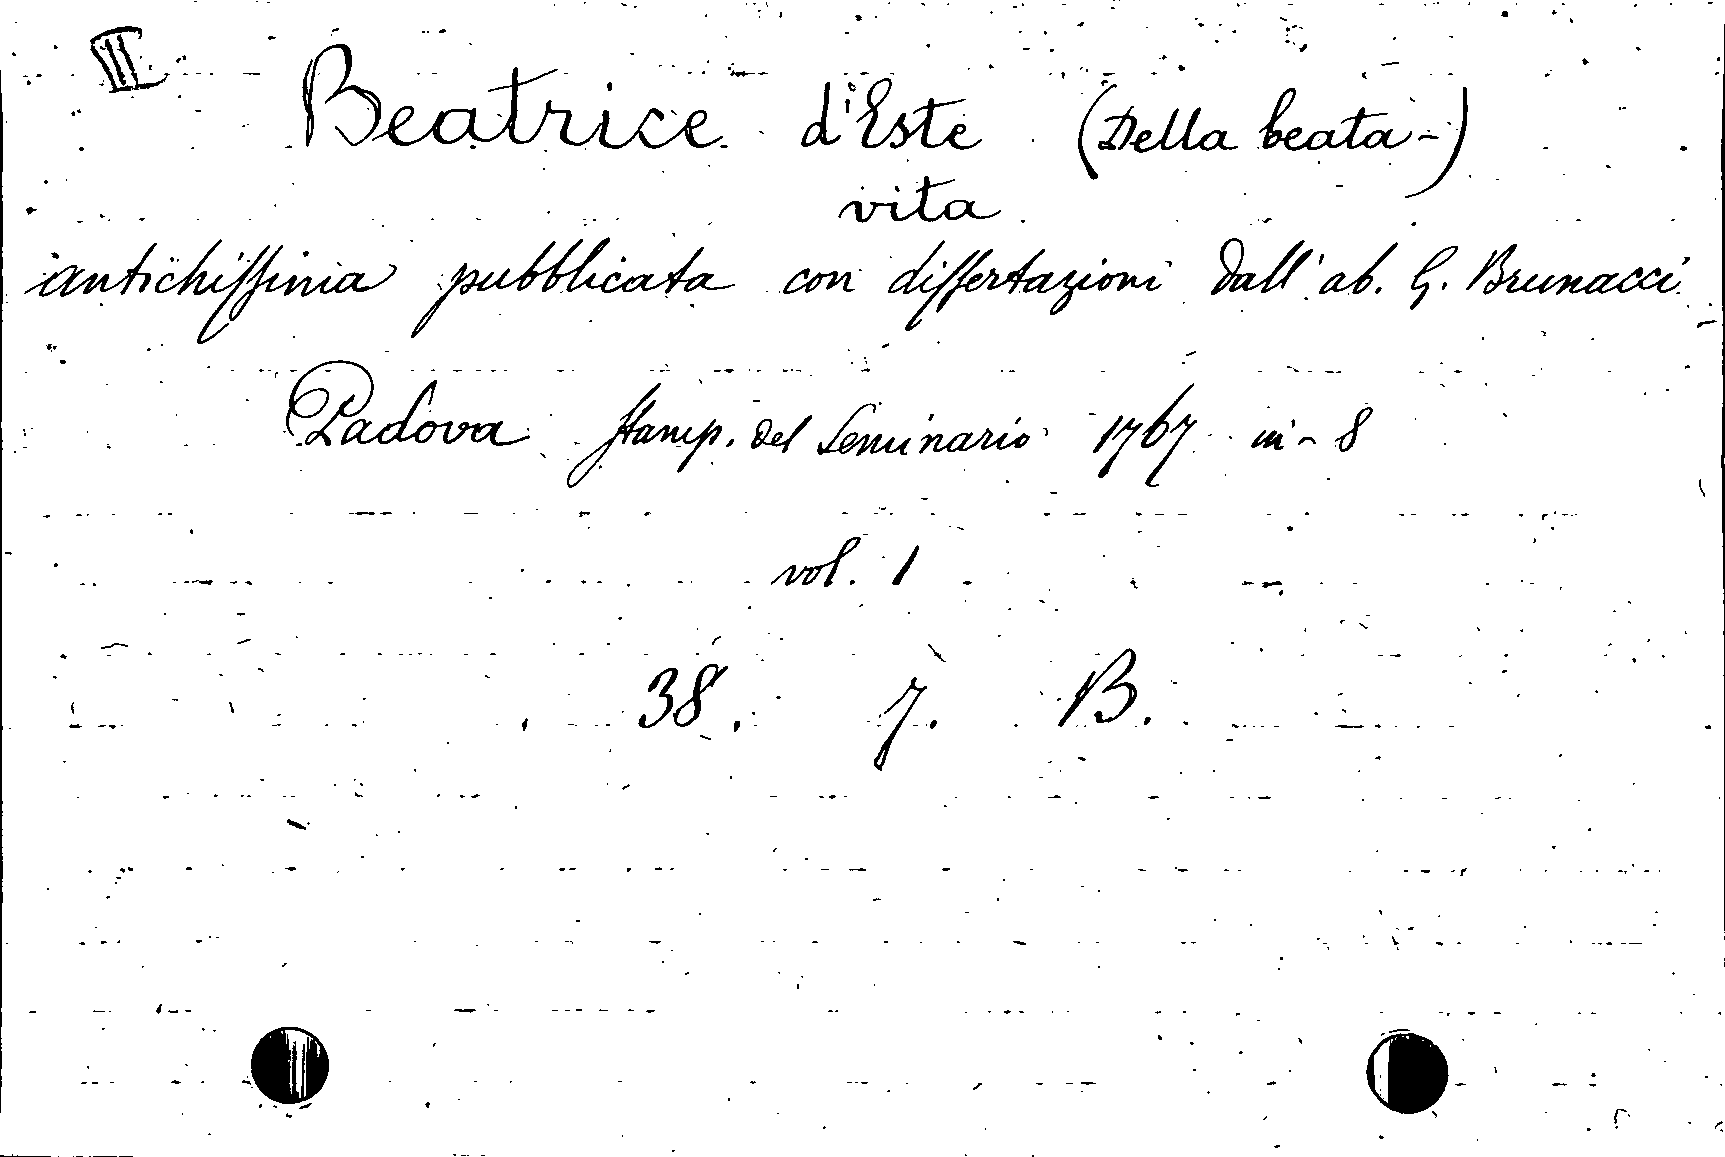 III
Beatrice d'Este (Della beata -)
vita
antichissima pubblicata con dissertazioni dall'ab. G. Brunacci
Padova Stamp. del Seminario 1767 in-8
vol. 1
38. 7. B.